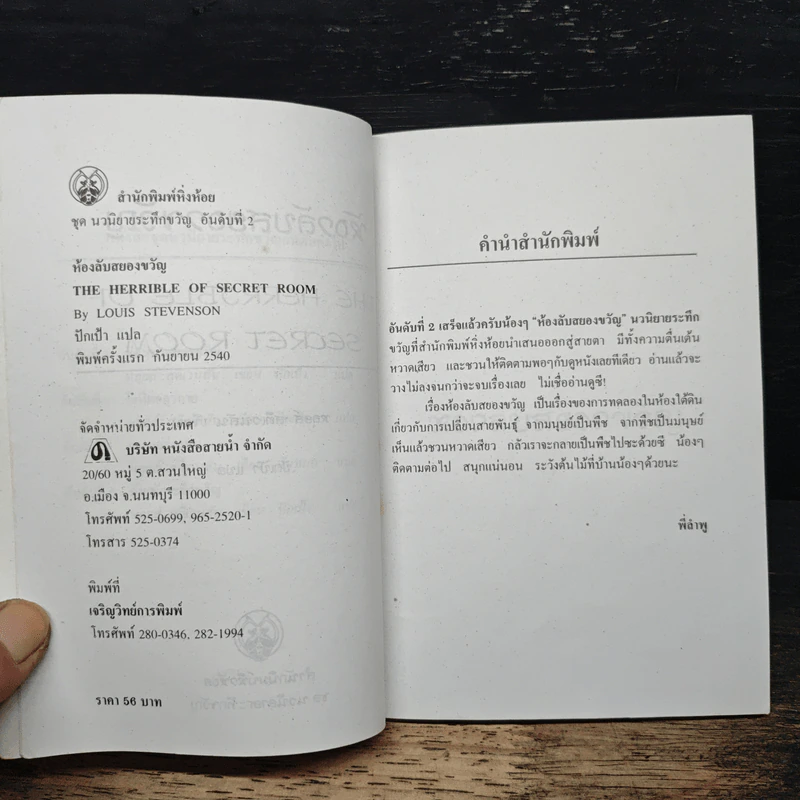 สำนักพิมพ์หิ่งห้อย
ชุด นวนิยายระทึกขวัญ อันดับที่ 2
ห้องลับสยองขวัญ
THE HERRIBLE OF SECRET ROOM
By LOUIS STEVENSON
ปักเป้า แปล
พิมพ์ครั้งแรก กันยายน 2540
จัดจำหน่ายทั่วประเทศ
บริษัท หนังสือสายน้ำ จำกัด
20/60 หมู่ 5 ต.สวนใหญ่
อ.เมือง จ.นนทบุรี 11000
โทรศัพท์ 525-0699, 965-2520-1
โทรสาร 525-0374
พิมพ์ที่
เจริญวิทย์การพิมพ์
โทรศัพท์ 280-0346, 282-1994
ราคา 56 บาท
คำนำสำนักพิมพ์
อันดับที่ 2 เสร็จแล้วครับน้องๆ "ห้องลับสยองขวัญ" นวนิยายระทึก
ขวัญที่สำนักพิมพ์หิ่งห้อยนำเสนอออกสู่สายตา มีทั้งความตื่นเต้น
หวาดเสียว และชวนให้ติดตามพอๆกับดูหนังเลยทีเดียว อ่านแล้วจะ
วางไม่ลงจนกว่าจะจบเรื่องเลย ไม่เชื่ออ่านดูซี!
เรื่องห้องลับสยองขวัญ เป็นเรื่องของการทดลองในห้องใต้ดิน
เกี่ยวกับการเปลี่ยนสายพันธุ์ จากมนุษย์เป็นพืช จากพืชเป็นมนุษย์
เห็นแล้วชวนหวาดเสียว กลัวเราจะกลายเป็นพืชไปซะด้วยซี น้องๆ
ติดตามต่อไป สนุกแน่นอน ระวังต้นไม้ที่บ้านน้องๆด้วยนะ
พี่ลำพู